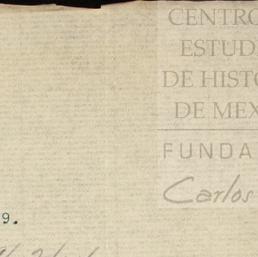 CENTRO
ESTUD
DE HIST
DE MEX
FUNDA
Carlos
9.